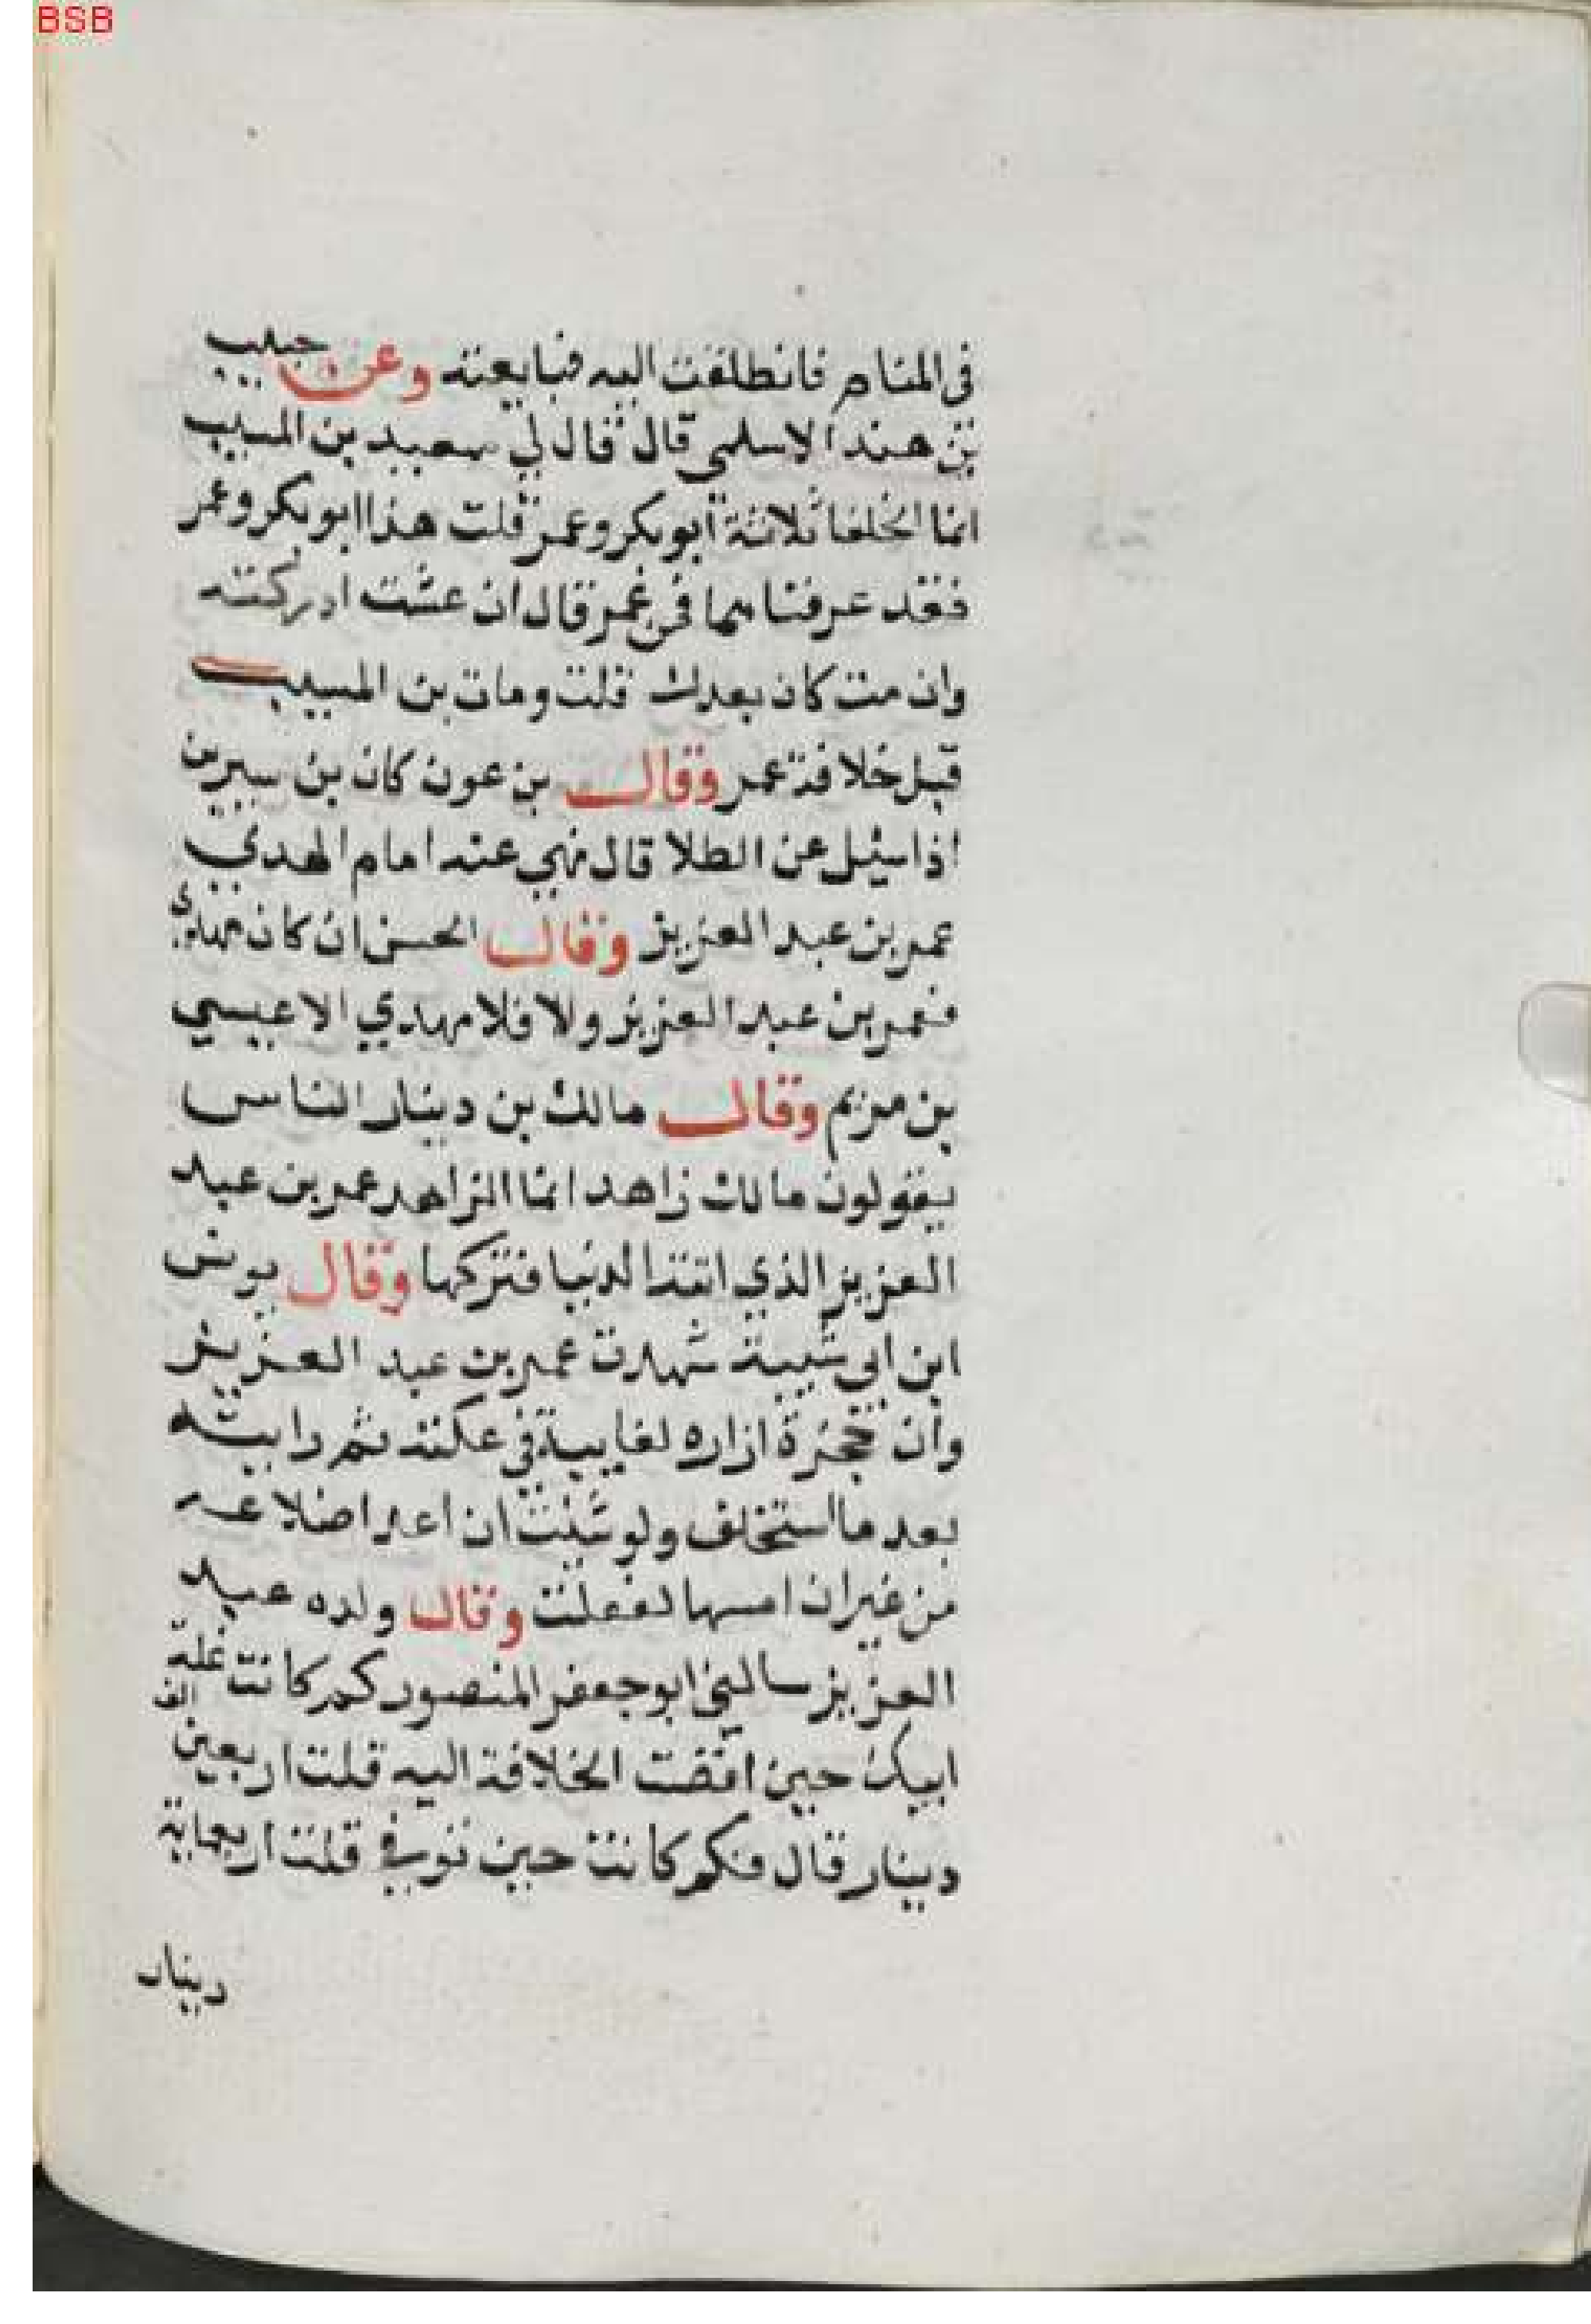 BSB
في المنام فانطلقت اليه فبايعته وعن حبيب
بن هند الاسلمي قال قال لي سعيد بن المسيب
انما الخلفا ثلاثة ابو بكر وعمر وعمر قلت هذا ابو بكر وعمر
فقد عرفناهما فمن عمر قال ان عشت ادركته
وان مت كان بعدك قلت ومات بن المسيب
قبل خلافة عمر وقال بن عون كان بن سيرين
اذا سئيل عن الطلا قال نهي عنه امام الهدي
عمر بن عبد العزيز وقال الحسن ان كان مهدي
فعمر بن عبد العزيز ولا فلا مهدي الا عيسي
بن مريم وقال مالك بن دينار الناس
يقولون مالك زاهد انما الزاهد عمر بن عبد
العزيز الذي اتته الدنيا فتركها وقال يونس
ابن ابي شيبة شهدت عمر بن عبد العزيز
وان حجزة ازاره لغايبة في عكنه ثم رايته
بعد ما استخلف ولو شئت ان اعد اضلاعه
من غير ان امسها لفعلت وقال ولده عبد
العزيز سالني ابو جعفر المنصور كم كانت غلة
ابيك حين افضت الخلافة اليه قلت اربعين الف
دينار قال فكم كانت حين توفي قلت اربعماية
دينار